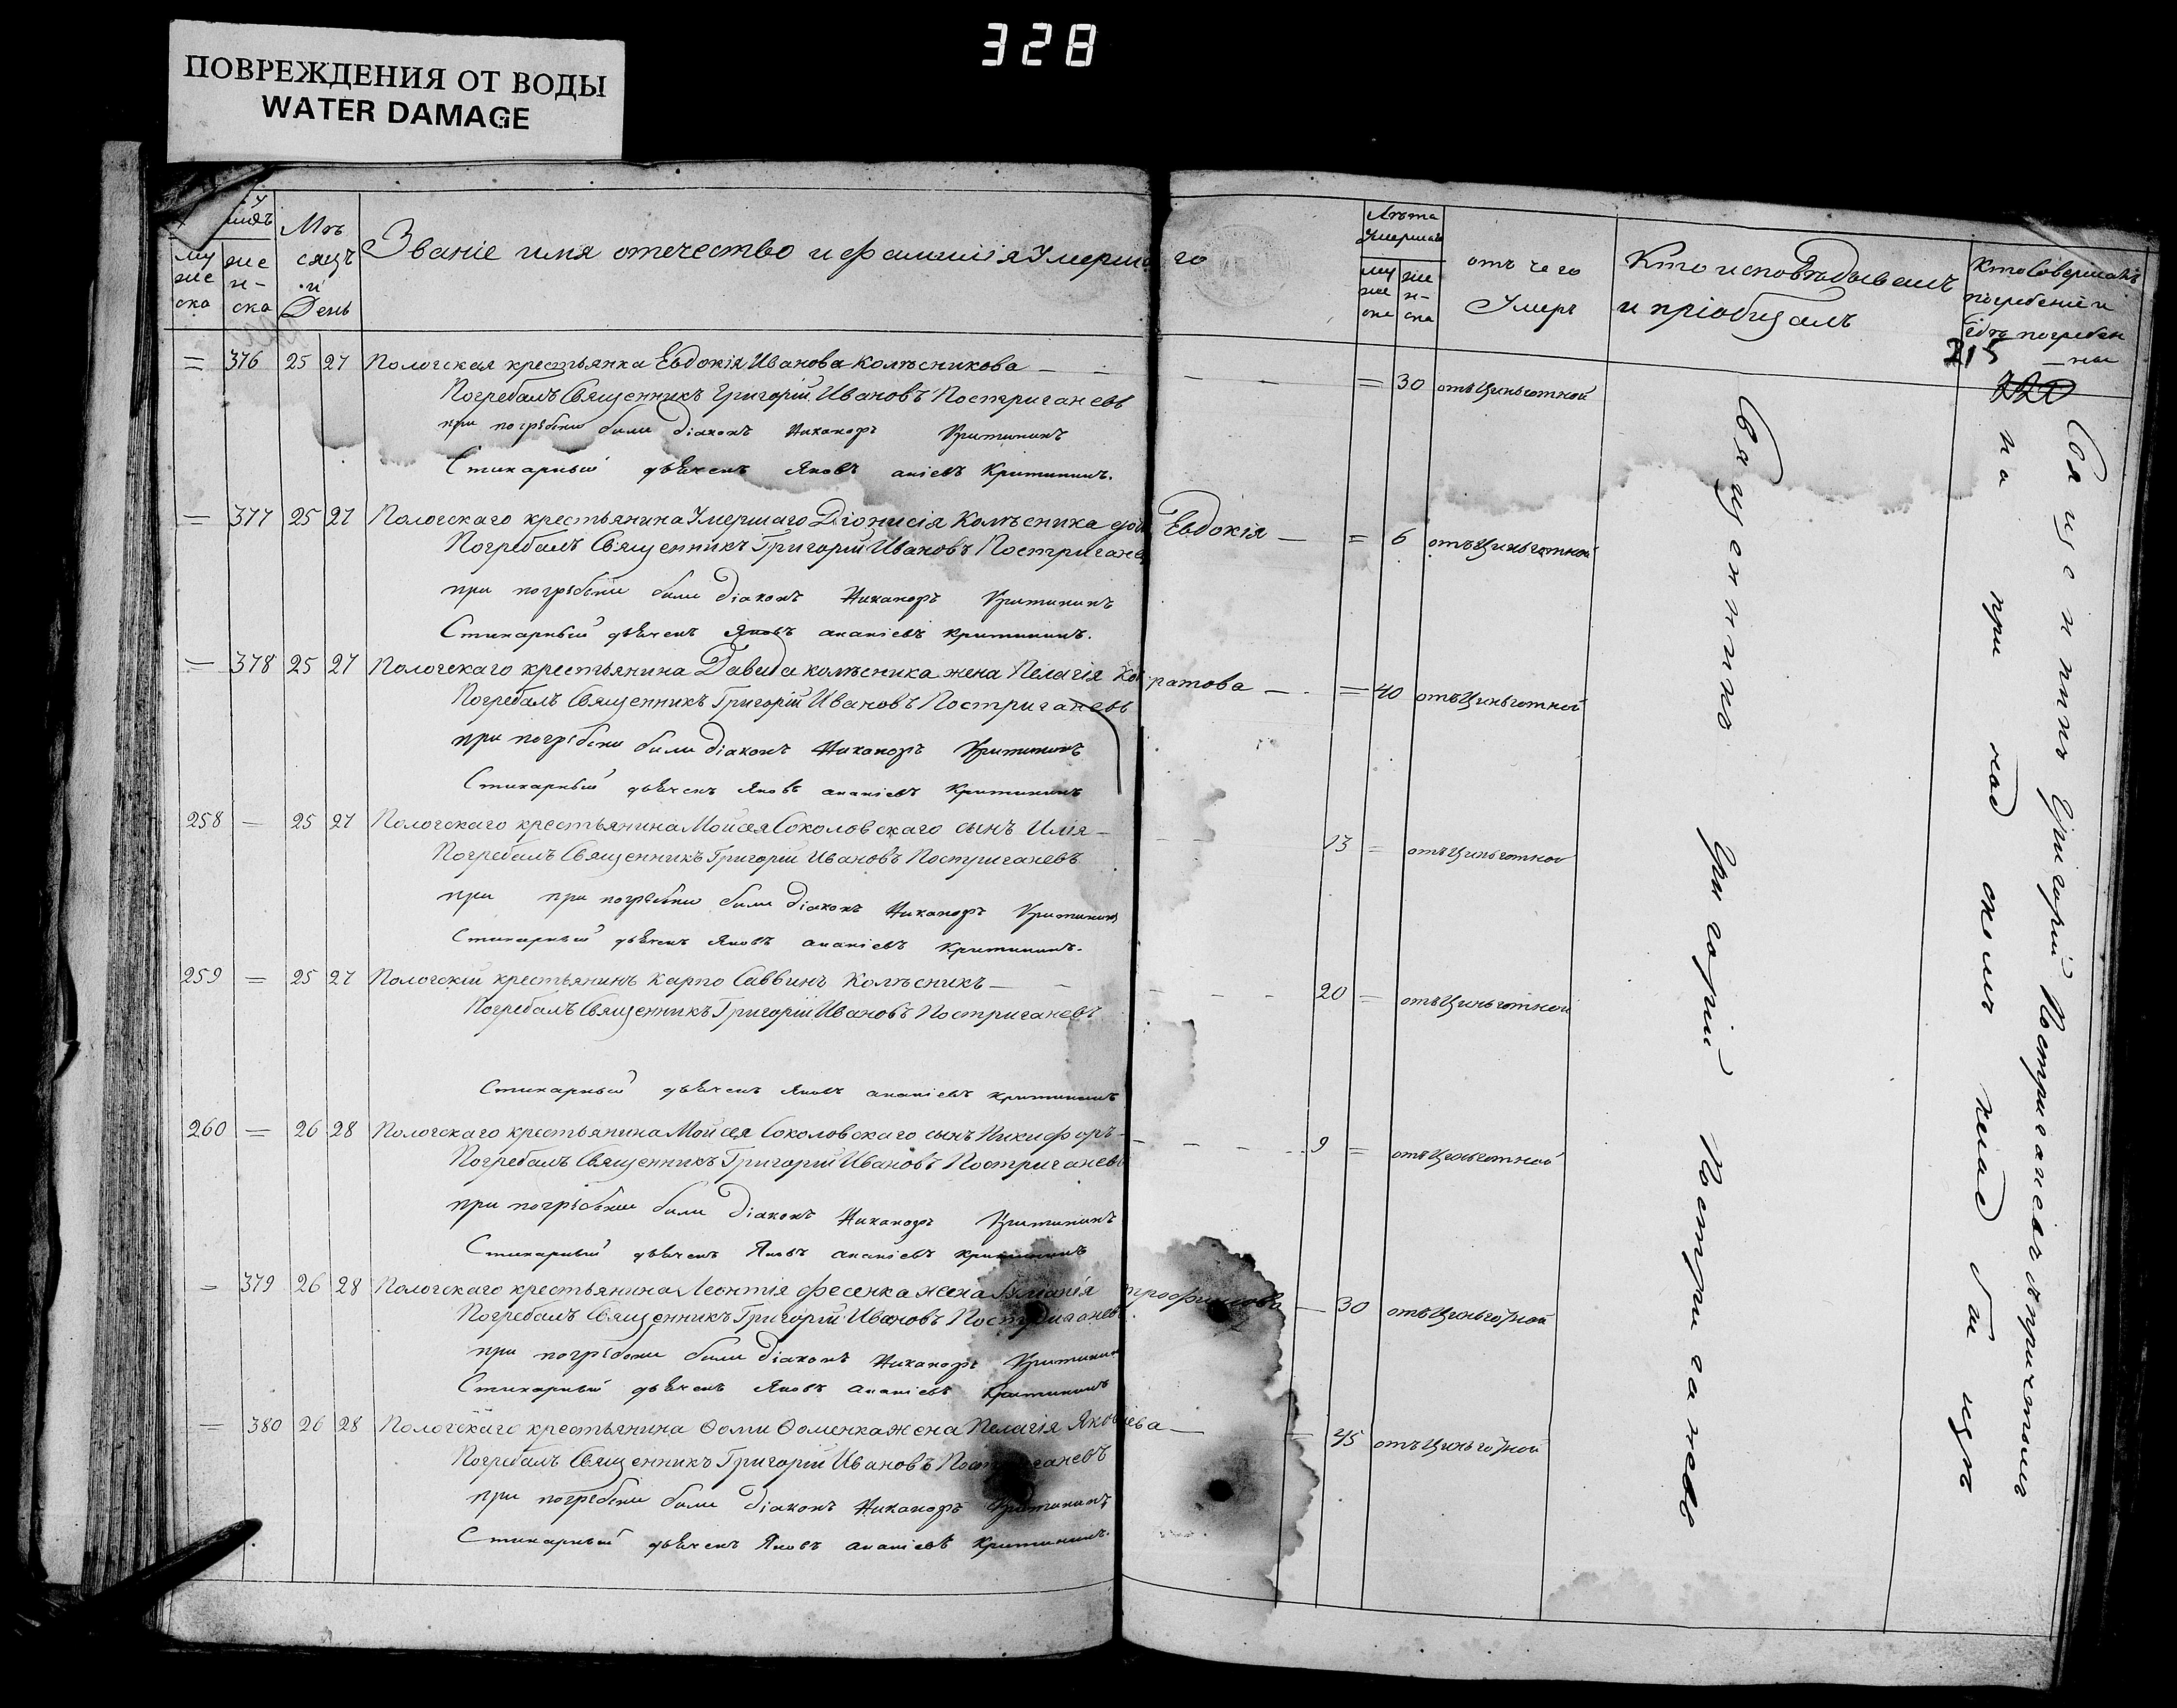 328
ПОВРЕЖДЕНИЯ ОТ ВОДЫ
WATER DAMAGE
Мѣсяцъ и День
Званіе имя отечество и фамилія Умершаго
Лѣта Умершаго
муже ска
жен-ска
отъ чего Умеръ
Кто исповѣдывалъ и пріобщалъ
Кто Совершалъ погребеніе и гдѣ погребены
215
220
= 376 25 27 Пологская крестьянка Евдокія Иванова Колѣсникова — = 30 отъ Цынготной
Погребалъ Священникъ Григорій Ивановъ Постригачевъ
при погрѣбени были Діаконъ Никаноръ Критининъ
Стихарный дьячекъ Яковъ Критининъ.
— 377 25 27 Пологскаго крестьянина Умершаго Діонисія Колѣсника дочь Евдокія — = 6 отъ Цынготной
Погребалъ Священникъ Григорій Ивановъ Постригачевъ
при погрѣбени были Діаконъ Никаноръ Критининъ
Стихарный дьячекъ Яковъ ананіевъ Критининъ.
— 378 25 27 Пологскаго крестьянина Давида колѣсника жена Пелагія — = 40 отъ Цынготной
Погребалъ Священникъ Григорій Ивановъ Постригачевъ
при погрѣбени были Діаконъ Никаноръ Критининъ
Стихарный дьячекъ Яковъ ананіевъ Критининъ
258 — 25 27 Пологскаго крестьянина Мойсея Соколовскаго сынъ Илія — 13 = отъ Цынготной
Погребалъ Священникъ Григорій Ивановъ Постригачевъ
при при погрѣбени были Діаконъ Никаноръ Критининъ
Стихарный дьячекъ Яковъ ананіевъ Критининъ.
259 = 25 27 Пологскій крестьянинъ Карпо Саввинъ Колѣсникъ — 20 = отъ Цынготной
Погребалъ Священникъ Григорій Ивановъ Постригачевъ
Стихарный дьячекъ Яковъ ананіевъ Критининъ
260 = 26 28 Пологскаго крестьянина Мойсея Соколовскаго сынъ Никифоръ — 9 = отъ Цынготной
Погребалъ Священникъ Григорій Ивановъ Постригачевъ
при погрѣбени были Діаконъ Никаноръ Критининъ
Стихарный дьячекъ Яковъ ананіевъ Критининъ
= 379 26 28 Пологскаго крестьянина Леонтія Фесенка жена — 30 отъ Цынготной
Погребалъ Священникъ Григорій Ивановъ Постригачевъ
при погрѣбени были Діаконъ Никаноръ Критининъ
Стихарный дьячекъ Яковъ ананіевъ Критининъ
— 380 26 28 Пологскаго крестьянина Ѳомы Ѳоменка жена Пелагія Яковлева — = 45 отъ Цынготной
Погребалъ Священникъ Григорій Ивановъ Постригачевъ
при погрѣбени были Діаконъ Никаноръ Критининъ
Стихарный дьячекъ Яковъ ананіевъ Критининъ.
Священникъ Григорій Постригачевъ
Священникъ Григорій Постригачевъ съ причтомъ
на при ход ском клад би щѣ